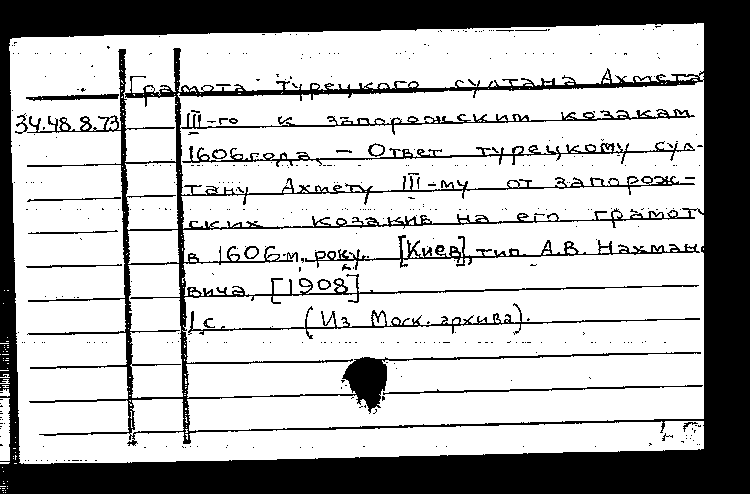 Грамота турецкого султана Ахмета
34.48.8.73 III-го к запорожским козакам
1606 года. – Ответ турецкому сул-
тану Ахмету III-му от запорож-
ских козакив на его грамоту
в 1606 м. року. [Киев], тип. А.В. Нахмано
вича, [1908].
1 с. (Из Моск. архива).